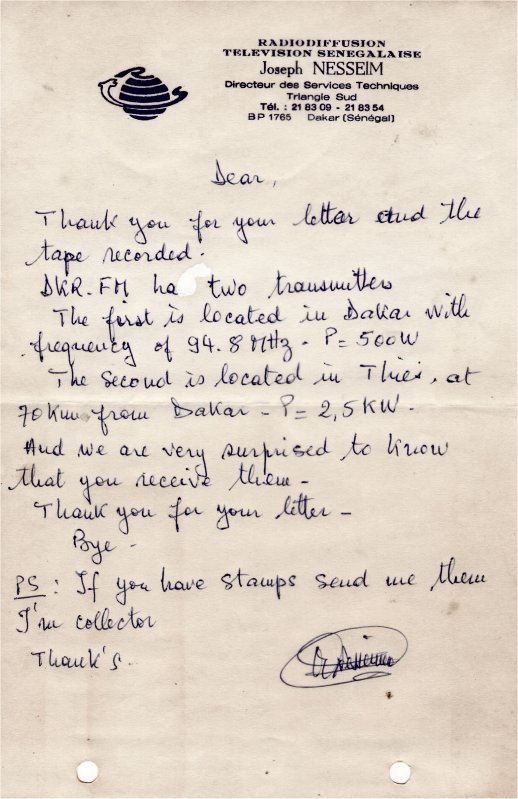 RADIODIFFUSION
TELEVISION SENEGALAISE
Joseph NESSEIM
Directeur des Services Techniques
Triangle Sud
Tél. : 21 83 09 - 21 83 54
BP 1765 Dakar (Sénégal)
Dear,
Thank you for your letter and the
tape recorded.
DKR-FM ha two transmitters
The first is located in Dakar with
frequency of 94.8 MHz - P = 500W
The second is located in Thiès, at
70 Km from Dakar - P = 2,5 KW.
And we are very surprised to know
that you receive them -
Thank you for your letter -
Bye -
PS : If you have stamps send me them
I'm collector
Thank's